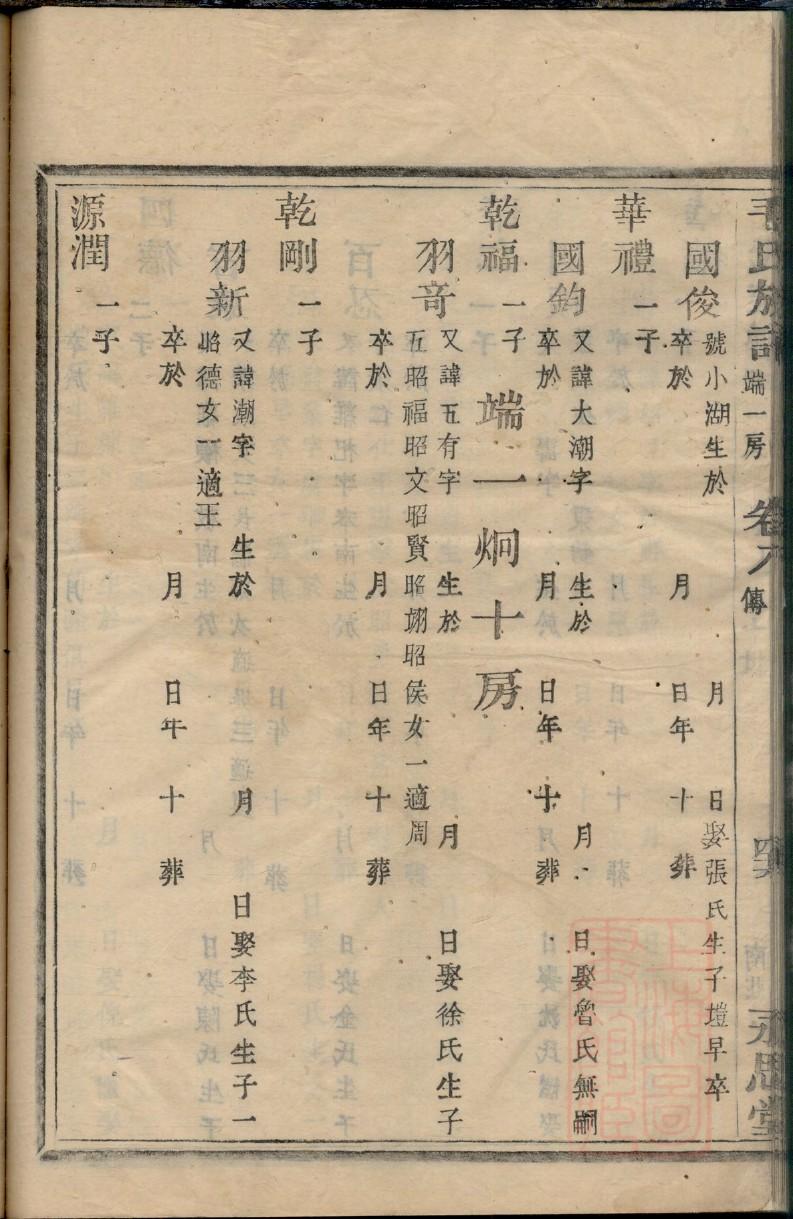 毛氏族譜 端一房 卷六 傳 永思堂
國俊 號小湖生於 月 日娶張氏生子塏早卒
卒於 月 日年 十 葬
華禮 一子
國鈞 又諱大潮字 生於 月 日娶魯氏無嗣
卒於 月 日年 十 葬
端一炯十房
乾福 一子
羽奇 又諱五有字 生於 月 日娶徐氏生子
五昭福昭文昭賢昭翊昭侯女一適周
卒於 月 日年 十 葬
乾剛 一子
羽新 又諱潮字 生於 月 日娶李氏生子一
昭德女一適王
卒於 月 日年 十 葬
源潤 一子